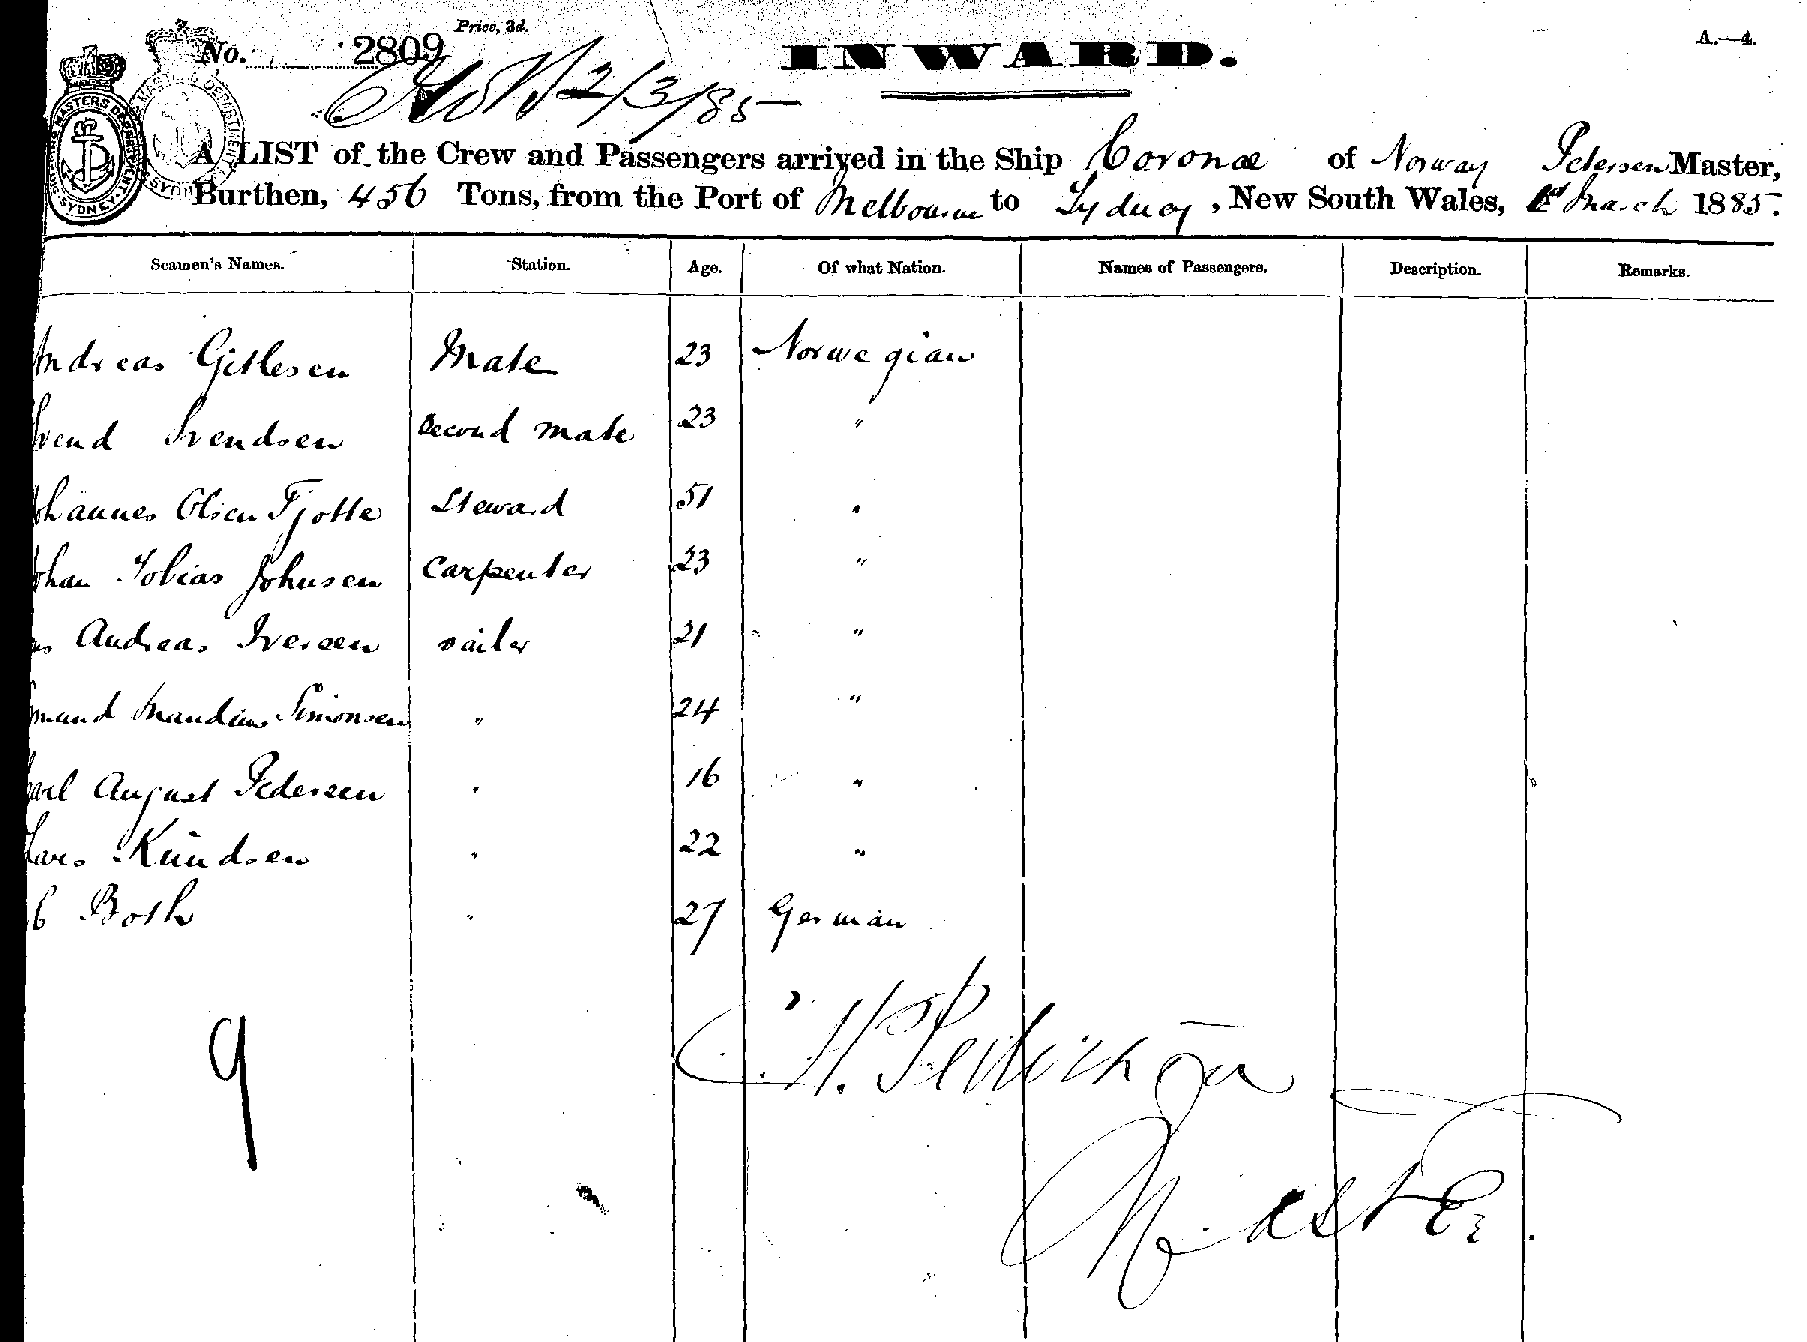 Price, 3d.
No. 2809
INWARD.
A.—4.
2/3/85
A LIST of the Crew and Passengers arrived in the Ship Coronæ of Norway Petersen Master,
Burthen, 456 Tons, from the Port of Melbourne to Sydney, New South Wales, 1st March 1885.
Seamen's Names. Station. Age. Of what Nation. Names of Passengers. Description. Remarks.
Andreas Gitlesen Mate 23 Norwegian
Svend Svendsen second mate 23 "
Johannes Olsen Tjotte Steward 51 "
Johan Tobias Johnsen Carpenter 23 "
Andreas Iversen sailor 21 "
Simonsen " 24 "
Carl August Pedersen " 16 "
Lars Knudsen " 22 "
C Both " 27 German
9
H.
Master.